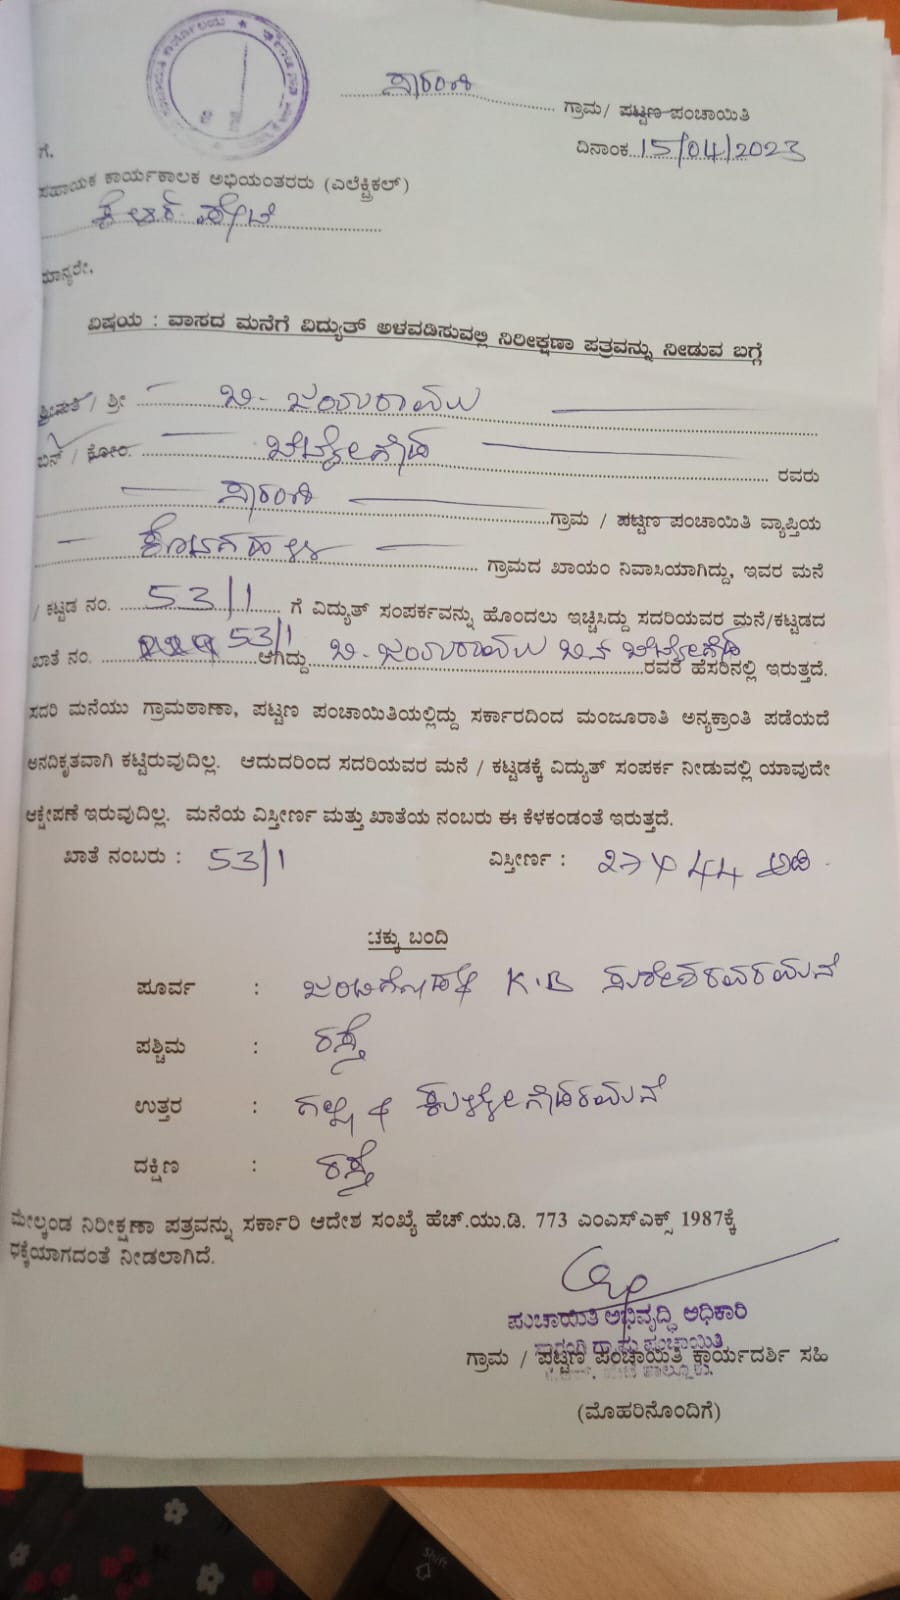 ಸಾರಂಗಿ ಗ್ರಾಮ/ ಪಟ್ಟಣ ಪಂಚಾಯಿತಿ
ದಿನಾಂಕ 15/04/2023
ಗೆ,
ಸಹಾಯಕ ಕಾರ್ಯಕಾಲಕ ಅಭಿಯಂತರರು (ಎಲೆಕ್ಟ್ರಿಕಲ್)
ಕೆ.ಆರ್.ಪೇಟೆ
ಮಾನ್ಯರೇ,
ವಿಷಯ : ವಾಸದ ಮನೆಗೆ ವಿದ್ಯುತ್ ಅಳವಡಿಸುವಲ್ಲಿ ನಿರೀಕ್ಷಣಾ ಪತ್ರವನ್ನು ನೀಡುವ ಬಗ್ಗೆ
ಶ್ರೀಮತಿ / ಶ್ರೀ ಬಿ. ಜಯರಾಮು
ಬಿನ್ / ಕೋಂ. ಬೆಟ್ಟೇಗೌಡ ರವರು
ಸಾರಂಗಿ ಗ್ರಾಮ / ಪಟ್ಟಣ ಪಂಚಾಯಿತಿ ವ್ಯಾಪ್ತಿಯ
ಗ್ರಾಮದ ಖಾಯಂ ನಿವಾಸಿಯಾಗಿದ್ದು, ಇವರ ಮನೆ
/ ಕಟ್ಟಡ ನಂ. 53/1 ಗೆ ವಿದ್ಯುತ್ ಸಂಪರ್ಕವನ್ನು ಹೊಂದಲು ಇಚ್ಚಿಸಿದ್ದು ಸದರಿಯವರ ಮನೆ/ಕಟ್ಟಡದ
ಖಾತೆ ನಂ. 53/1 ಆಗಿದ್ದು ಬಿ. ಜಯರಾಮು ಬಿನ್ ಬೆಟ್ಟೇಗೌಡ ರವರ ಹೆಸರಿನಲ್ಲಿ ಇರುತ್ತದೆ.
ಸದರಿ ಮನೆಯು ಗ್ರಾಮಠಾಣಾ, ಪಟ್ಟಣ ಪಂಚಾಯಿತಿಯಲ್ಲಿದ್ದು ಸರ್ಕಾರದಿಂದ ಮಂಜೂರಾತಿ ಅನ್ಯಕ್ರಾಂತಿ ಪಡೆಯದೆ
ಅನದಿಕೃತವಾಗಿ ಕಟ್ಟಿರುವುದಿಲ್ಲ. ಆದುದರಿಂದ ಸದರಿಯವರ ಮನೆ / ಕಟ್ಟಡಕ್ಕೆ ವಿದ್ಯುತ್ ಸಂಪರ್ಕ ನೀಡುವಲ್ಲಿ ಯಾವುದೇ
ಆಕ್ಷೇಪಣೆ ಇರುವುದಿಲ್ಲ. ಮನೆಯ ವಿಸ್ತೀರ್ಣ ಮತ್ತು ಖಾತೆಯ ನಂಬರು ಈ ಕೆಳಕಂಡಂತೆ ಇರುತ್ತದೆ.
ಖಾತೆ ನಂಬರು : 53/1 ವಿಸ್ತೀರ್ಣ : 27 x 44 ಅಡಿ.
ಚಕ್ಕು ಬಂದಿ
ಪೂರ್ವ : K.B ಸುರೇಶರವರಮನೆ
ಪಶ್ಚಿಮ : ರಸ್ತೆ
ಉತ್ತರ : ಗಲ್ಲಿ & ಕುಳ್ಳೇಗೌಡರಮನೆ
ದಕ್ಷಿಣ : ರಸ್ತೆ
ಮೇಲ್ಕಂಡ ನಿರೀಕ್ಷಣಾ ಪತ್ರವನ್ನು ಸರ್ಕಾರಿ ಆದೇಶ ಸಂಖ್ಯೆ ಹೆಚ್.ಯು.ಡಿ. 773 ಎಂಎಸ್‌ಎಕ್ಸ್ 1987ಕ್ಕೆ
ಧಕ್ಕೆಯಾಗದಂತೆ ನೀಡಲಾಗಿದೆ.
ಪಂಚಾಯಿತಿ ಅಭಿವೃದ್ಧಿ ಅಧಿಕಾರಿ
ಸಾರಂಗಿ ಗ್ರಾಮ ಪಂಚಾಯಿತಿ
ಗ್ರಾಮ / ಪಟ್ಟಣ ಪಂಚಾಯಿತಿ ಕಾರ್ಯದರ್ಶಿ ಸಹಿ
(ಮೊಹರಿನೊಂದಿಗೆ)
Shift